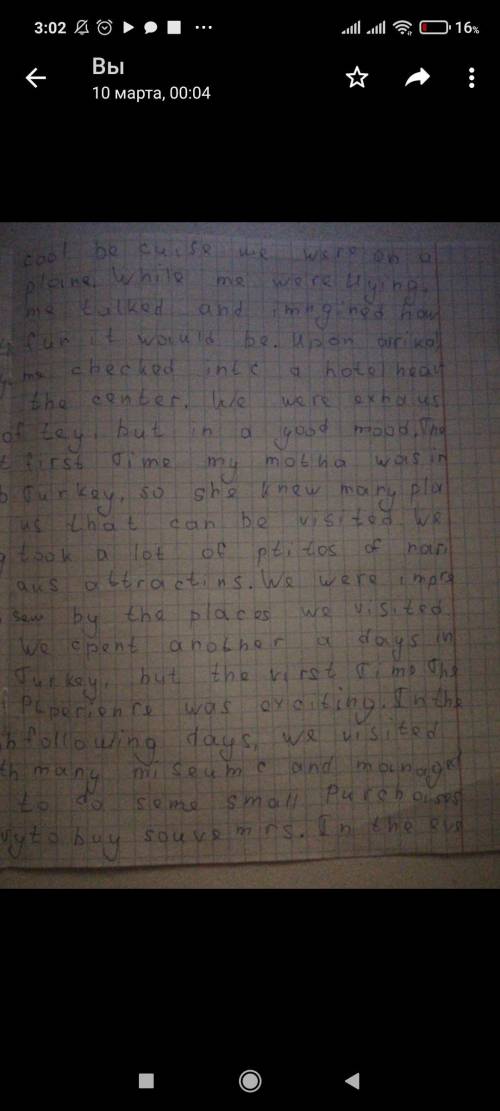 3:02
16%
Вы
10 марта, 00:04
cool be cuise we were on a
plaine. While me were llying,
me talked and imngined how
fun it would be. Upon arrival
me checked into a hotel near
the center. We were exhaus
of tey, but in a good mood. The
t first Time my motha was in
Turkey, so she knew many pla
us that can be visited. We
took a lot of ptitos of nari
aus attractins. We were impre
sew by the places we visited.
We cpent another a days in
Turkey, but the virst Time The
Pxperience was exciting. In the
following days, we visited
th many miseum c and managed
to do some small Purchaises
to buy souvemrs. In the eve